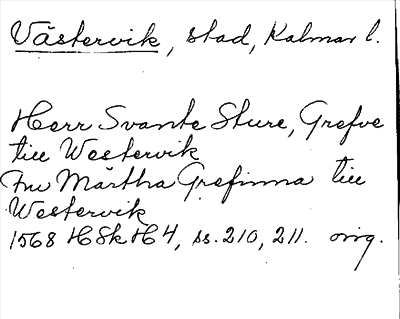 Västervik, stad, Kalmar l.
Herr Svante Sture, Grefve
till Westervik
Fru Märtha Grefinna till
Westervik
1568 HSk H4, ss. 210, 211. orig.